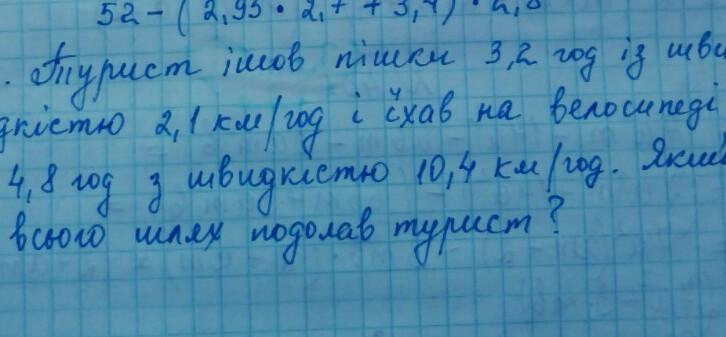 52 - (2,93 · 2,7 + 3,4) · 2,8
. Турист ішов пішки 3,2 год із шви
дкістю 2,1 км/год і їхав на велосипеді
4,8 год з швидкістю 10,4 км/год. Який
всього шлях подолав турист?